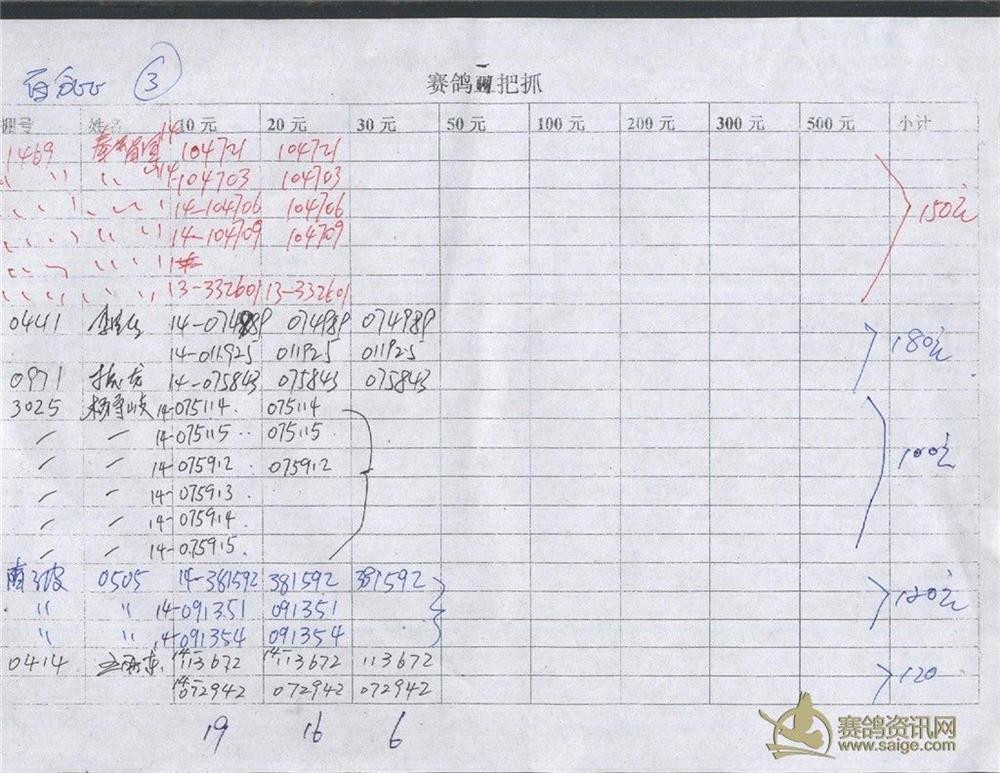 ③
赛鸽 把抓
棚号 姓名 10元 20元 30元 50元 100元 200元 300元 500元 小计
1469 14 104721 104721
" " " 14-104703 104703
" " " " 14-104706 104706 150元
" " " " 14-104709 104709
" " " "
" " " " 13-332601 13-332601
0441 14-074989 074989 074989
14-011925 011925 011925 180元
0971 14-075843 075843 075843
3025 14-075114. 075114
— — 14-075115.. 075115
— — 14-075912 075912 100元
— — 14-075913.
— — 14-075914.
— — 14-075915.
0505 14-381592 381592 381592
" " 14-091351 091351 120元
" " 14-091354 091354
0414 14-113672 14-113672 113672
14-072942 072942 072942 120
19 16 6
赛鸽资讯网
www.saige.com